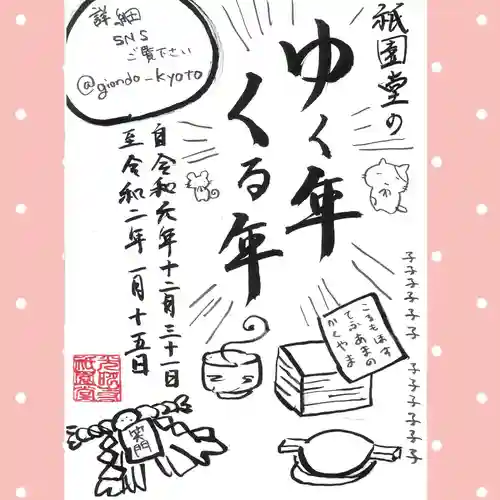 祇園堂の
ゆく年
くる年
詳細
SNS
ご覧下さい
@giondo_kyoto
自令和元年十二月三十一日
至令和二年一月十五日
ころもほす
てふあまの
かくやま
子子子子子子
子子子子子子
笑門
祇園堂